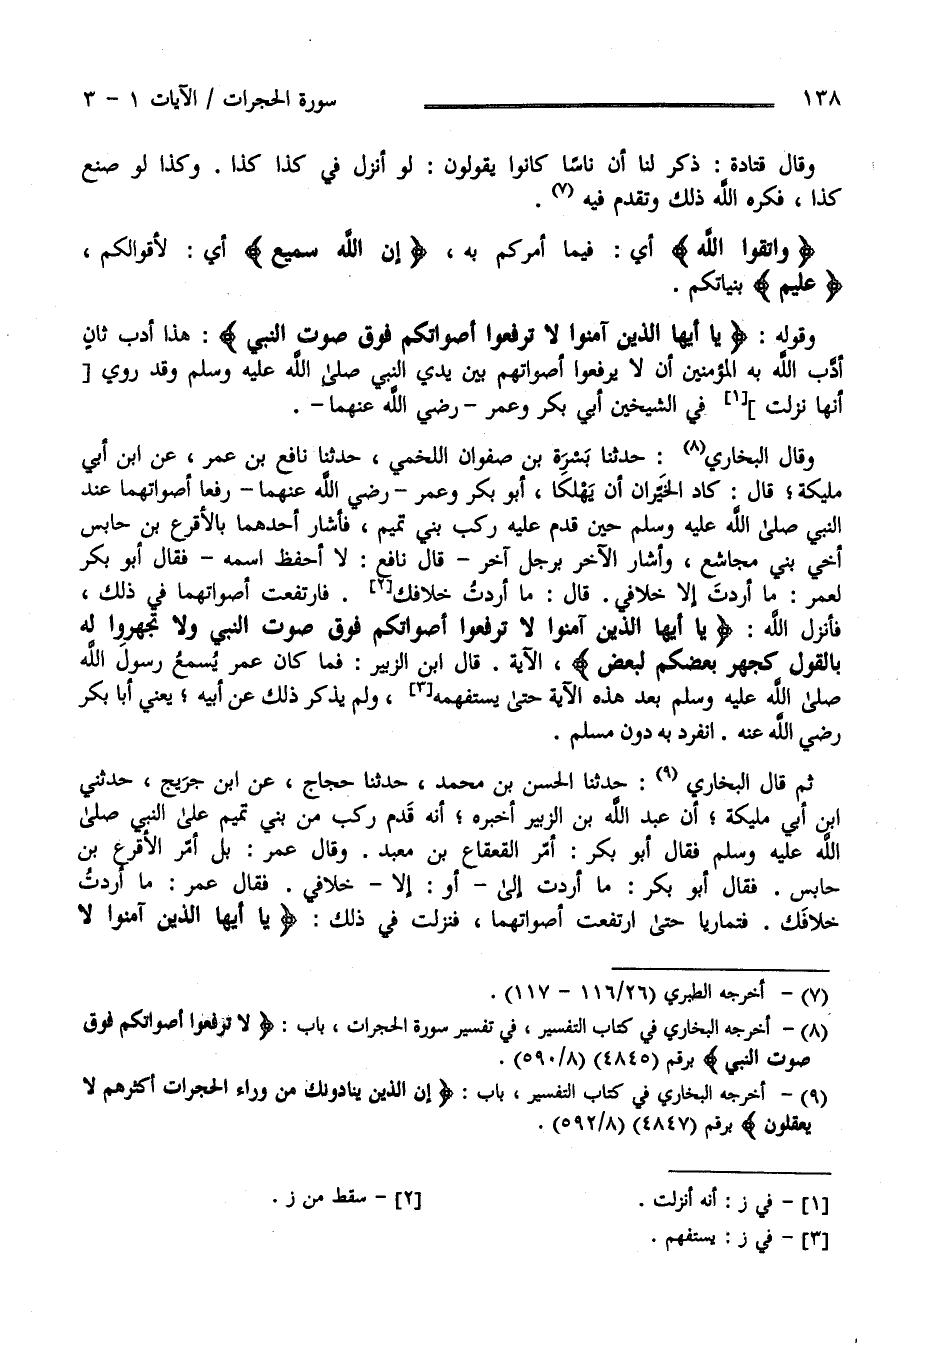 ١٣٨ سورة الحجرات / الآيات ١ - ٣
وقال قتادة : ذكر لنا أن ناسًا كانوا يقولون : لو أنزل في كذا كذا . وكذا لو صنع
كذا ، فكره اللَّه ذلك وتقدم فيه (٧) .
﴿ واتقوا اللَّه ﴾ أي : فيما أمركم به ، ﴿ إن اللَّه سميع ﴾ أي : لأقوالكم ،
﴿ عليم ﴾ بنياتكم .
وقوله : ﴿ يا أيها الذين آمنوا لا ترفعوا أصواتكم فوق صوت النبي ﴾ : هذا أدب ثانٍ
أدَّب اللَّه به المؤمنين أن لا يرفعوا أصواتهم بين يدي النبي صلىٰ اللَّه عليه وسلم وقد روي [
أنها نزلت ][١] في الشيخين أبي بكر وعمر - رضي اللَّه عنهما - .
وقال البخاري(٨) : حدثنا بَسْرَة بن صفوان اللخمي ، حدثنا نافع بن عمر ، عن ابن أبي
مليكة ؛ قال : كاد الخَيِّران أن يَهْلكَا ، أبو بكر وعمر - رضي اللَّه عنهما - رفعا أصواتهما عند
النبي صلىٰ اللَّه عليه وسلم حين قدم عليه ركب بني تميم ، فأشار أحدهما بالأقرع بن حابس
أخي بني مجاشع ، وأشار الآخر برجل آخر - قال نافع : لا أحفظ اسمه - فقال أبو بكر
لعمر : ما أردتَ إلا خلافي. قال : ما أردتُ خلافك[٢] . فارتفعت أصواتهما في ذلك ،
فأنزل اللَّه : ﴿ يا أيها الذين آمنوا لا ترفعوا أصواتكم فوق صوت النبي ولا تجهروا له
بالقول كجهر بعضكم لبعض ﴾ ، الآية . قال ابن الزبير : فما كان عمر يُسمعُ رسولَ اللَّه
صلىٰ اللَّه عليه وسلم بعد هذه الآية حتىٰ يستفهمه[٣] ، ولم يذكر ذلك عن أبيه ؛ يعني أبا بكر
رضي اللَّه عنه . انفرد به دون مسلم .
ثم قال البخاري (٩) : حدثنا الحسن بن محمد ، حدثنا حجاج ، عن ابن جريج ، حدثني
ابن أبي مليكة ؛ أن عبد اللَّه بن الزبير أخبره ؛ أنه قَدم ركب من بني تميم علىٰ النبي صلىٰ
اللَّه عليه وسلم فقال أبو بكر : أمّر القعقاع بن معبد . وقال عمر : بل أمّر الأقرع بن
حابس . فقال أبو بكر : ما أردت إلىٰ - أو : إلا - خلافي . فقال عمر : ما أردتُ
خلافَك . فتماريا حتىٰ ارتفعت أصواتهما ، فنزلت في ذلك : ﴿ يا أيها الذين آمنوا لا
(٧) - أخرجه الطبري (١١٦/٢٦ - ١١٧) .
(٨) - أخرجه البخاري في كتاب التفسير ، في تفسير سورة الحجرات ، باب : ﴿ لا ترفعوا أصواتكم فوق
صوت النبي ﴾ برقم (٤٨٤٥) (٥٩٠/٨) .
(٩) - أخرجه البخاري في كتاب التفسير ، باب : ﴿ إن الذين ينادونك من وراء الحجرات أكثرهم لا
يعقلون ﴾ برقم (٤٨٤٧) (٥٩٢/٨) .
[١] - في ز : أنه أنزلت . [٢] - سقط من ز .
[٣] - في ز : يستفهم .